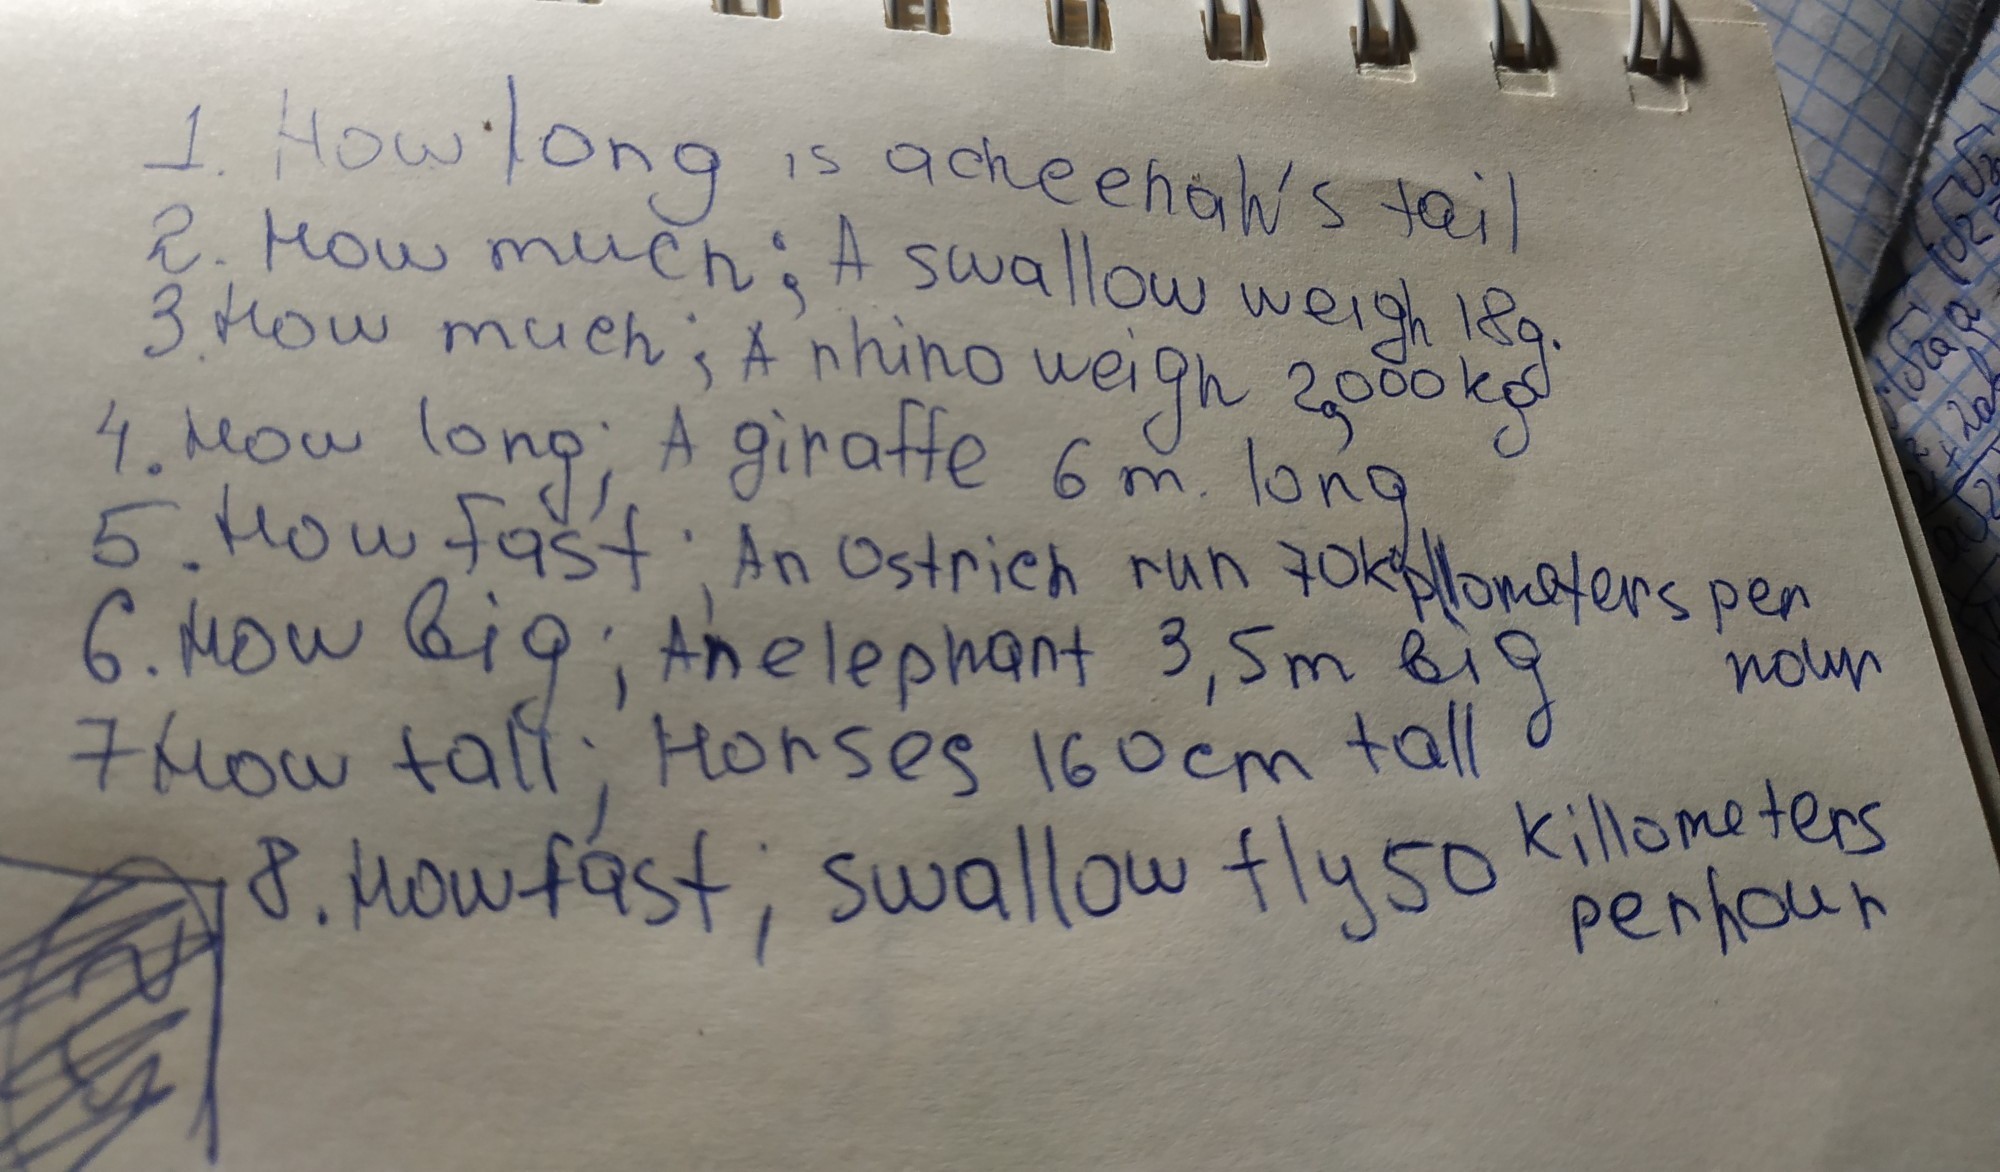 1. How long is a cheehah's tail
2. How much; A swallow weigh 18g.
3. How much; A rhino weigh 2,000 kg
4. How long; A giraffe 6 m. long
5. How fast; An Ostrich run 70 killometers per
hour
6. How big; An elephant 3,5m big
7 How tall; Horses 160cm tall
8. How fast; swallow fly 50 killometers
per hour